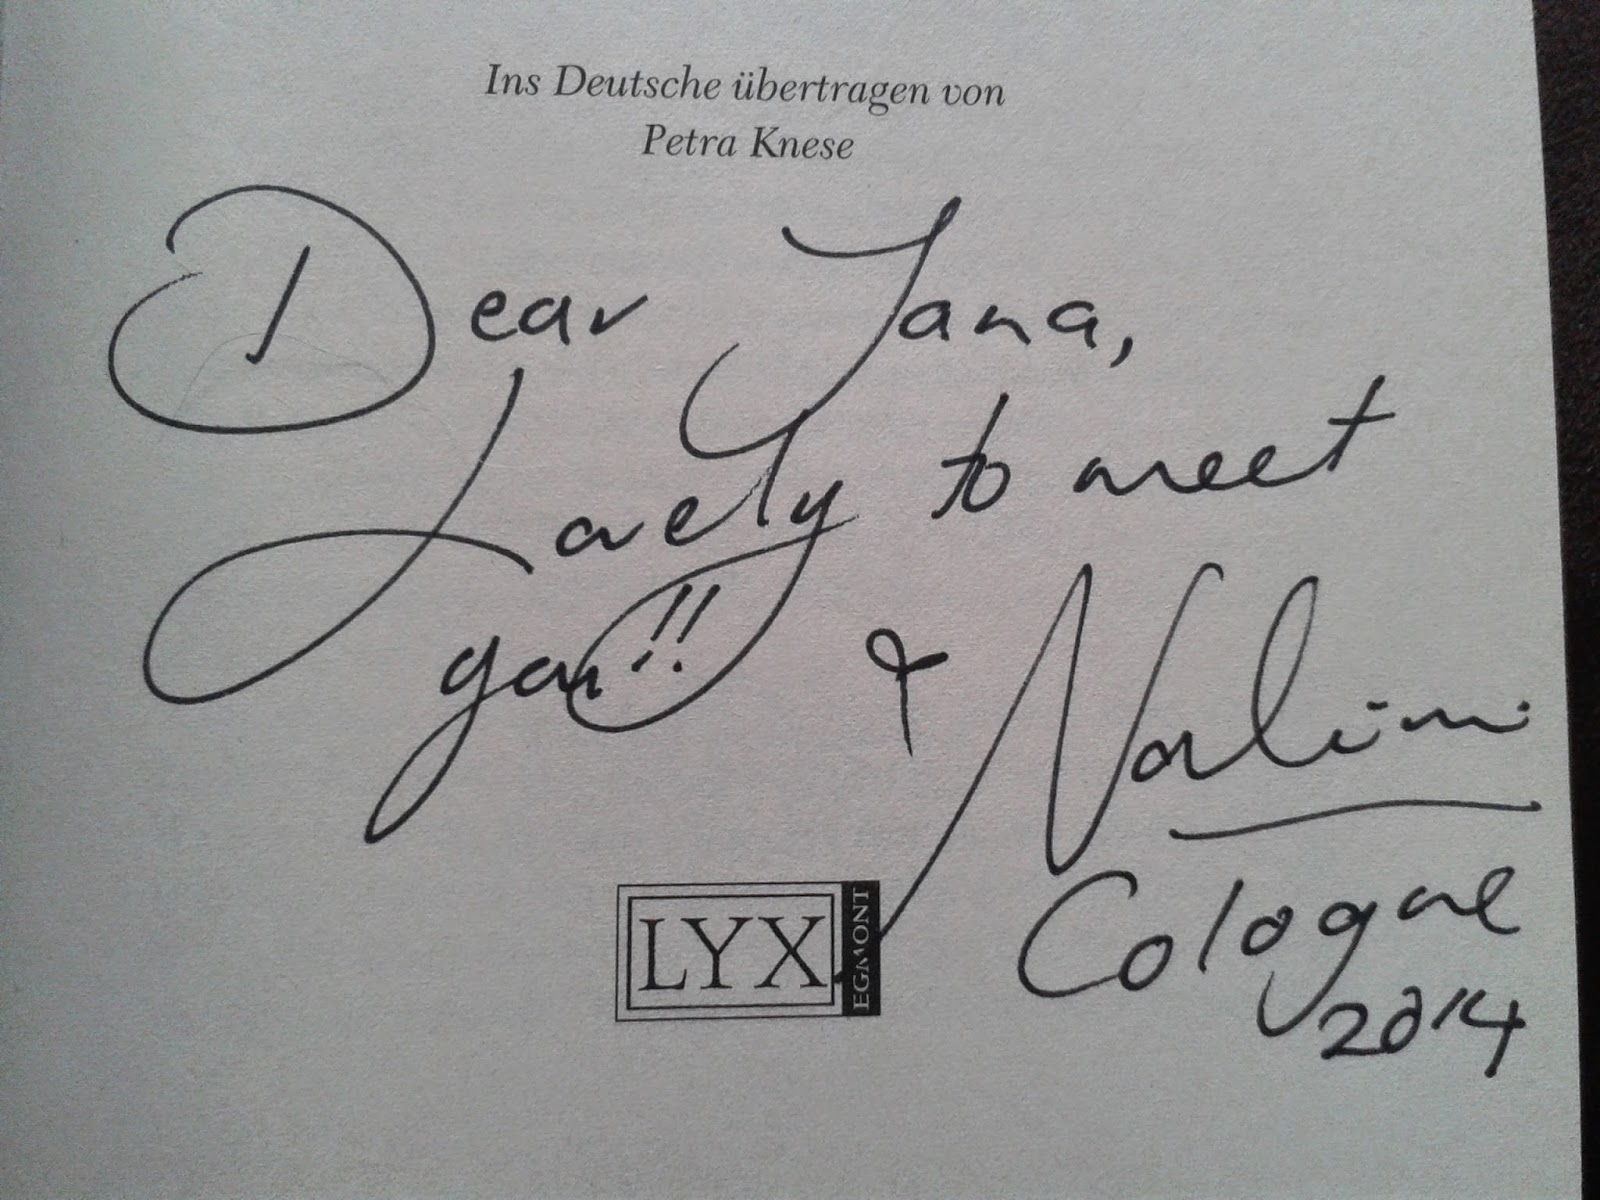 Ins Deutsche übertragen von
Petra Knese
Dear Jana,
Lovely to meet
you!!
Nalini
Cologne
2014
LYX
EGMONT